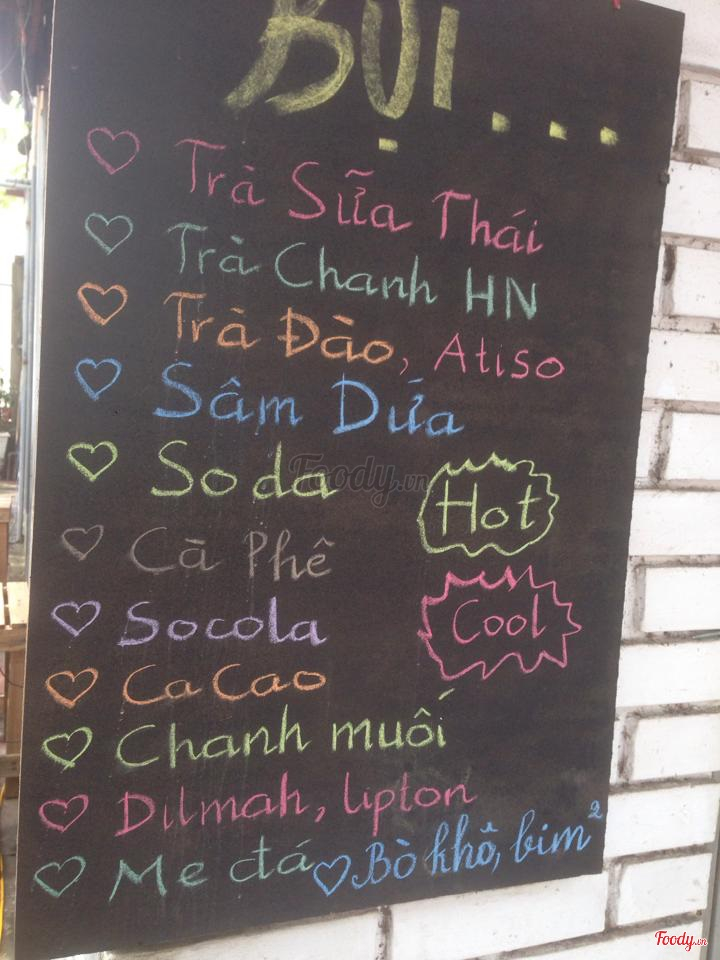 BỤI...
Trà Sữa Thái
Trà Chanh HN
Trà Đào, Atiso
Sâm Dứa
Soda
Foody.vn
Hot
Cà Phê
Socola
Cool
Ca Cao
Chanh muối
Dilmah, lipton
Me đá
Bò khô, bim²
Foody.vn